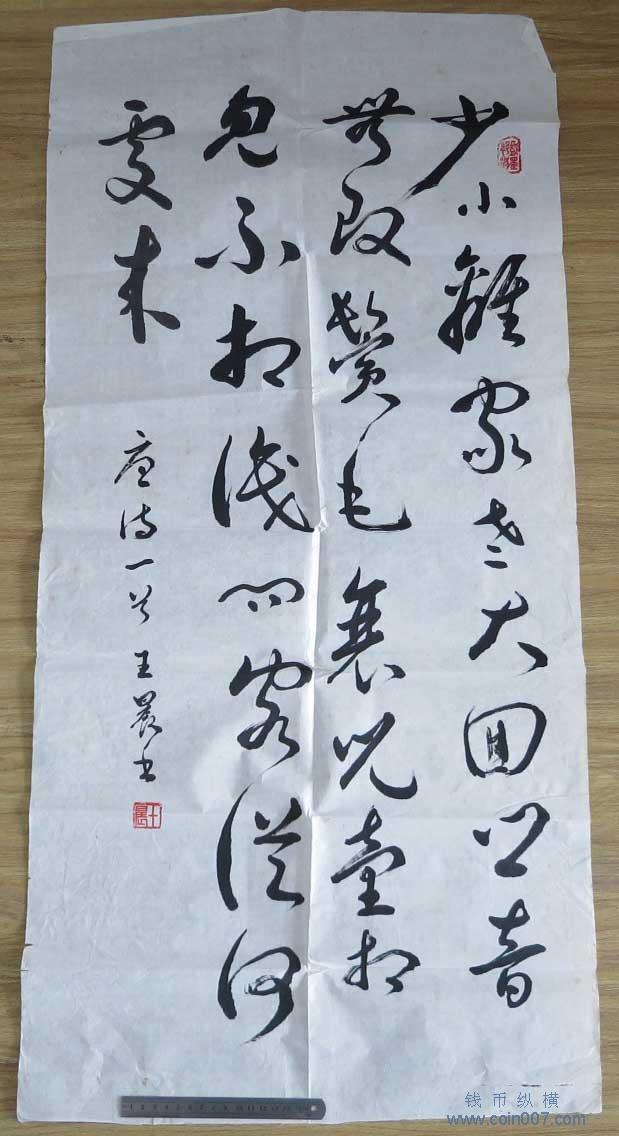 少小離家老大回乡音
無改鬢毛衰兒童相
見不相識问客從何
處来
唐诗一首 王晨书
王晨
钱币纵横
www.coin007.com